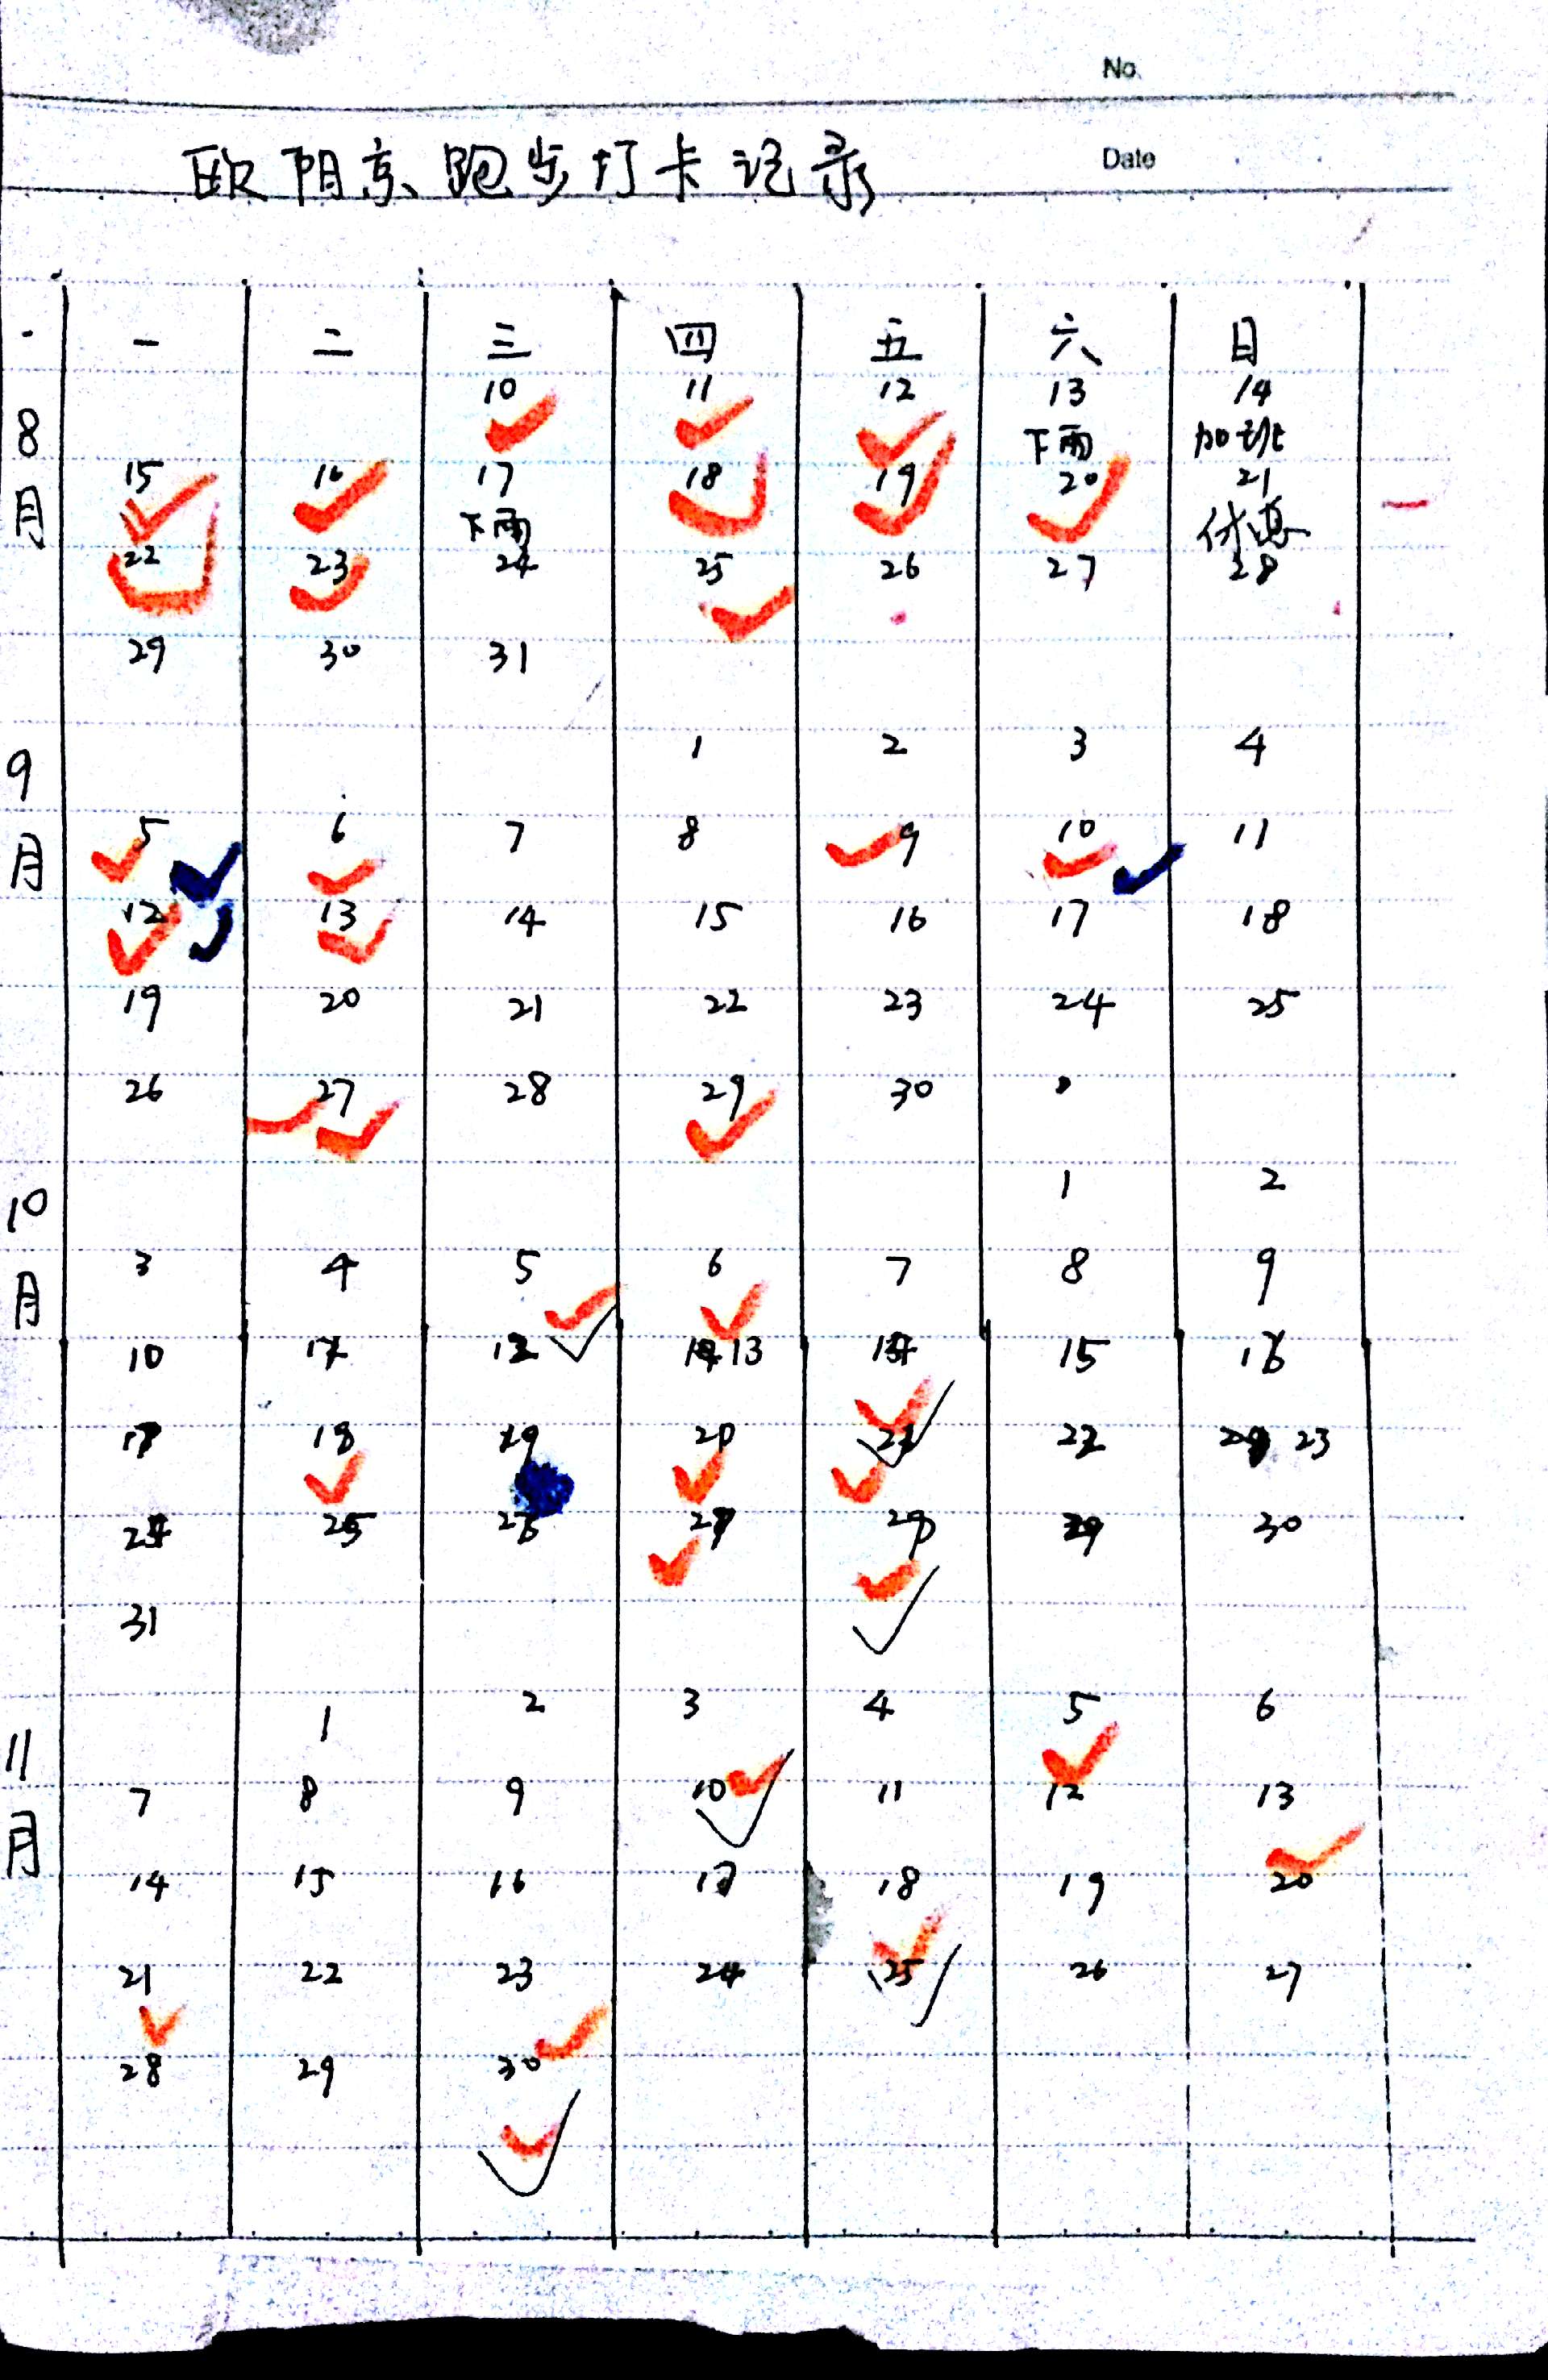 No.
Date
欧阳京跑步打卡记录
一 二 三 四 五 六 日
8月
10 11 12 13 14
下雨 加班
15 16 17 18 19 20 21
下雨 休息
22 23 24 25 26 27 28
29 30 31
9月
1 2 3 4
5 6 7 8 9 10 11
12 13 14 15 16 17 18
19 20 21 22 23 24 25
26 27 28 29 30
10月
1 2
3 4 5 6 7 8 9
10 12 13 15 16
18 19 20 22 23
25 30
31
11月
1 2 3 4 5 6
7 8 9 10 11 12 13
14 15 16 17 18 19 20
21 22 23 24 25 26 27
28 29 30